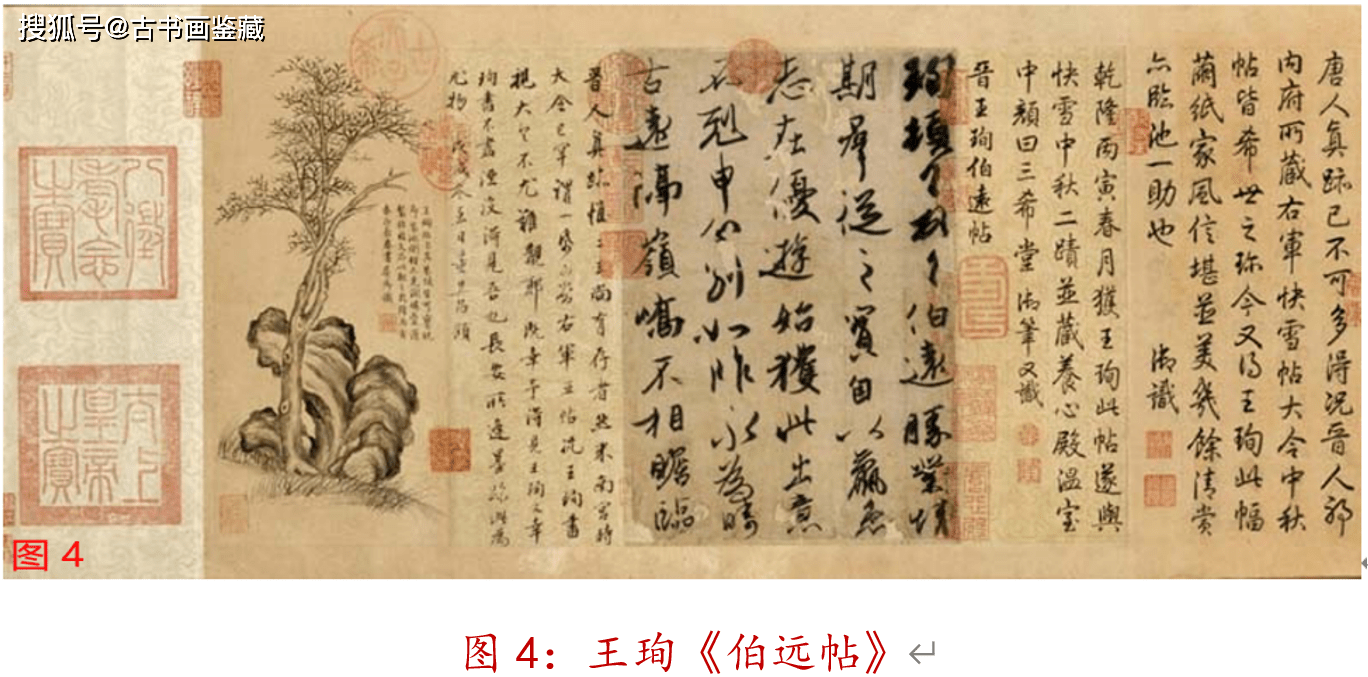 搜狐号@古书画鉴藏
唐人真跡已不可多得況晉人耶
內府所藏右軍快雪帖大令中秋
帖皆希世之珍今又得王珣此幅
繭紙家風信堪並美幾餘清賞
亦臨池一助也 御識
乾隆丙寅春月獲王珣此帖遂與
快雪中秋二蹟並藏養心殿溫室
中顏曰三希堂 御筆又識
晉王珣伯遠帖
珣頓首頓首伯遠勝業情
期羣從之寶自以羸患
志在優遊始獲此出意
不剋申分別如昨永為疇
古遠隔嶺嶠不相瞻臨
晉人真跡惟二王尚有存者然米南宮時
大令已罕謂一紙可當右軍五帖況王珣書
視大令不尤難覯耶既幸予得見王珣又幸
珣書不盡湮沒得見吾也長安所逢墨跡此為
尤物 戊戌冬至日董其昌題
八徵耄念之寶
太上皇帝之寶
图 4
图 4：王珣《伯远帖》